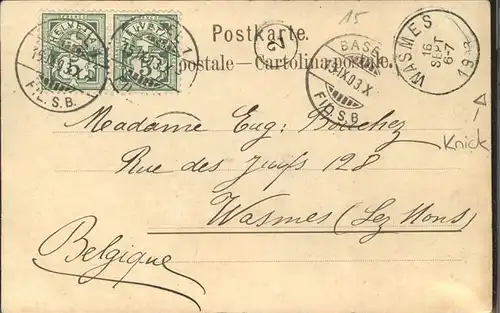 15
Postkarte.
postale — Cartolina postale.
5 5
FIL. S.B.
2
BASEL
15.IX.03.X
FIL. S.B.
WASMES
16
SEPT
6-7
19
Knick
Madame Eug:
Rue des Juifs 128
Wasmes (Lez Mons)
Belgique